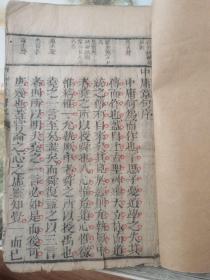 中庸章句序
中庸何為而作也子思子憂道學之失其
傳而作也蓋自上古聖神繼天立極而道
統之傳有自來矣其見於經則允執厥中
者堯之所以授舜也人心惟危道心惟微
惟精惟一允執厥中者舜之所以授禹也
堯之一言至矣盡矣而舜復益之以三言
者則所以明夫堯之一言必如是而後可
庶幾也蓋嘗論之心之虛靈知覺一而已